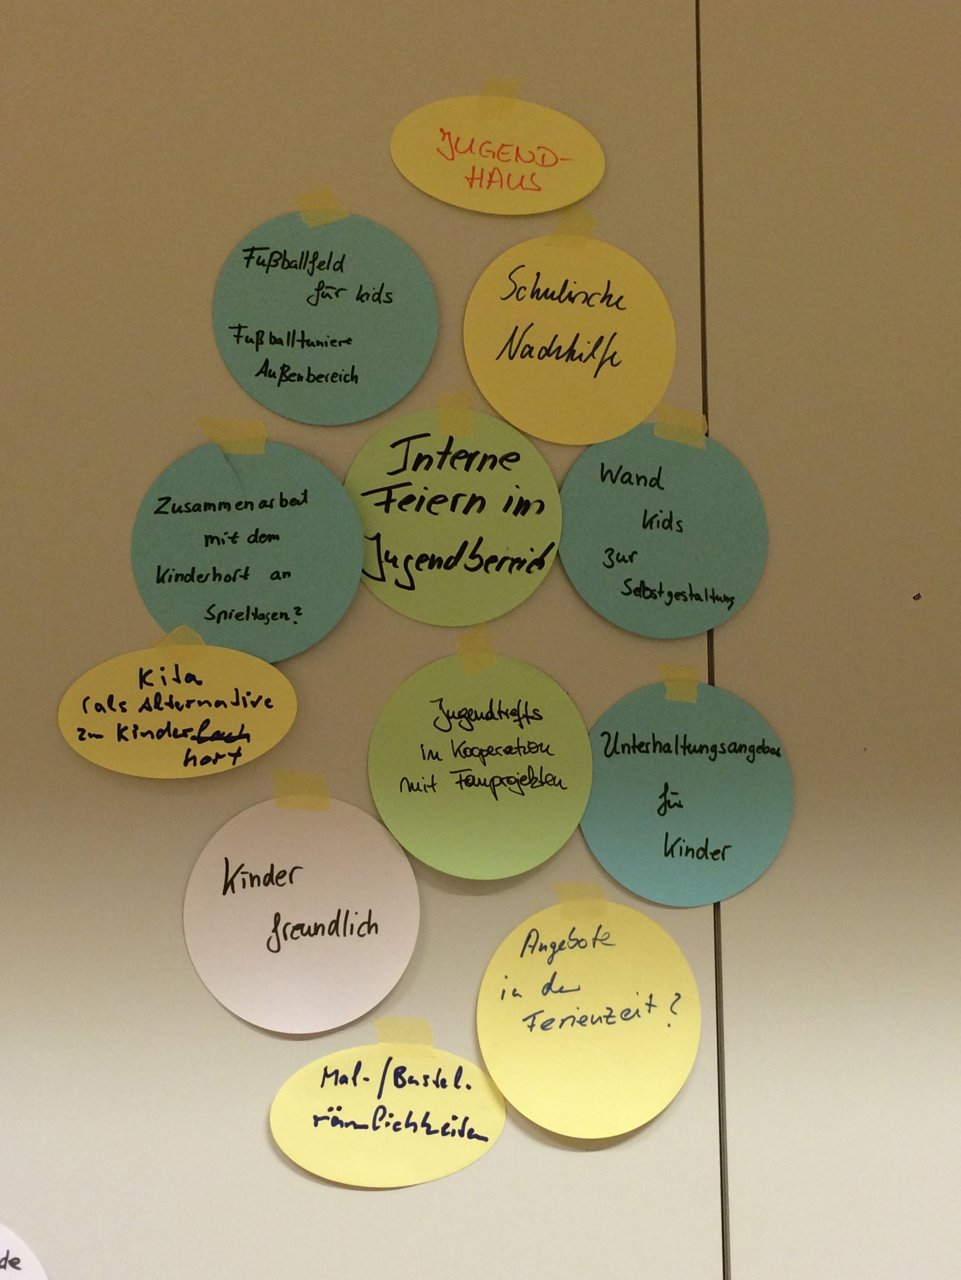 JUGEND-
HAUS
Fußballfeld
für kids
Fußballtuniere
Außenbereich
Schulische
Nachhilfe
Zusammenarbeit
mit dem
Kinderhort an
Spieltagen?
Interne
Feiern im
Jugendbereich
Wand
Kids
zur
Selbstgestaltung
Kita
(als Alternative
zu Kinder
hort
Jugendtreffs
in Kooperation
mit Fanprojekten
Unterhaltungsangebote
für
Kinder
Kinder
freundlich
Angebote
in der
Ferienzeit?
Mal-/Bastel-
räumlichkeiten
de